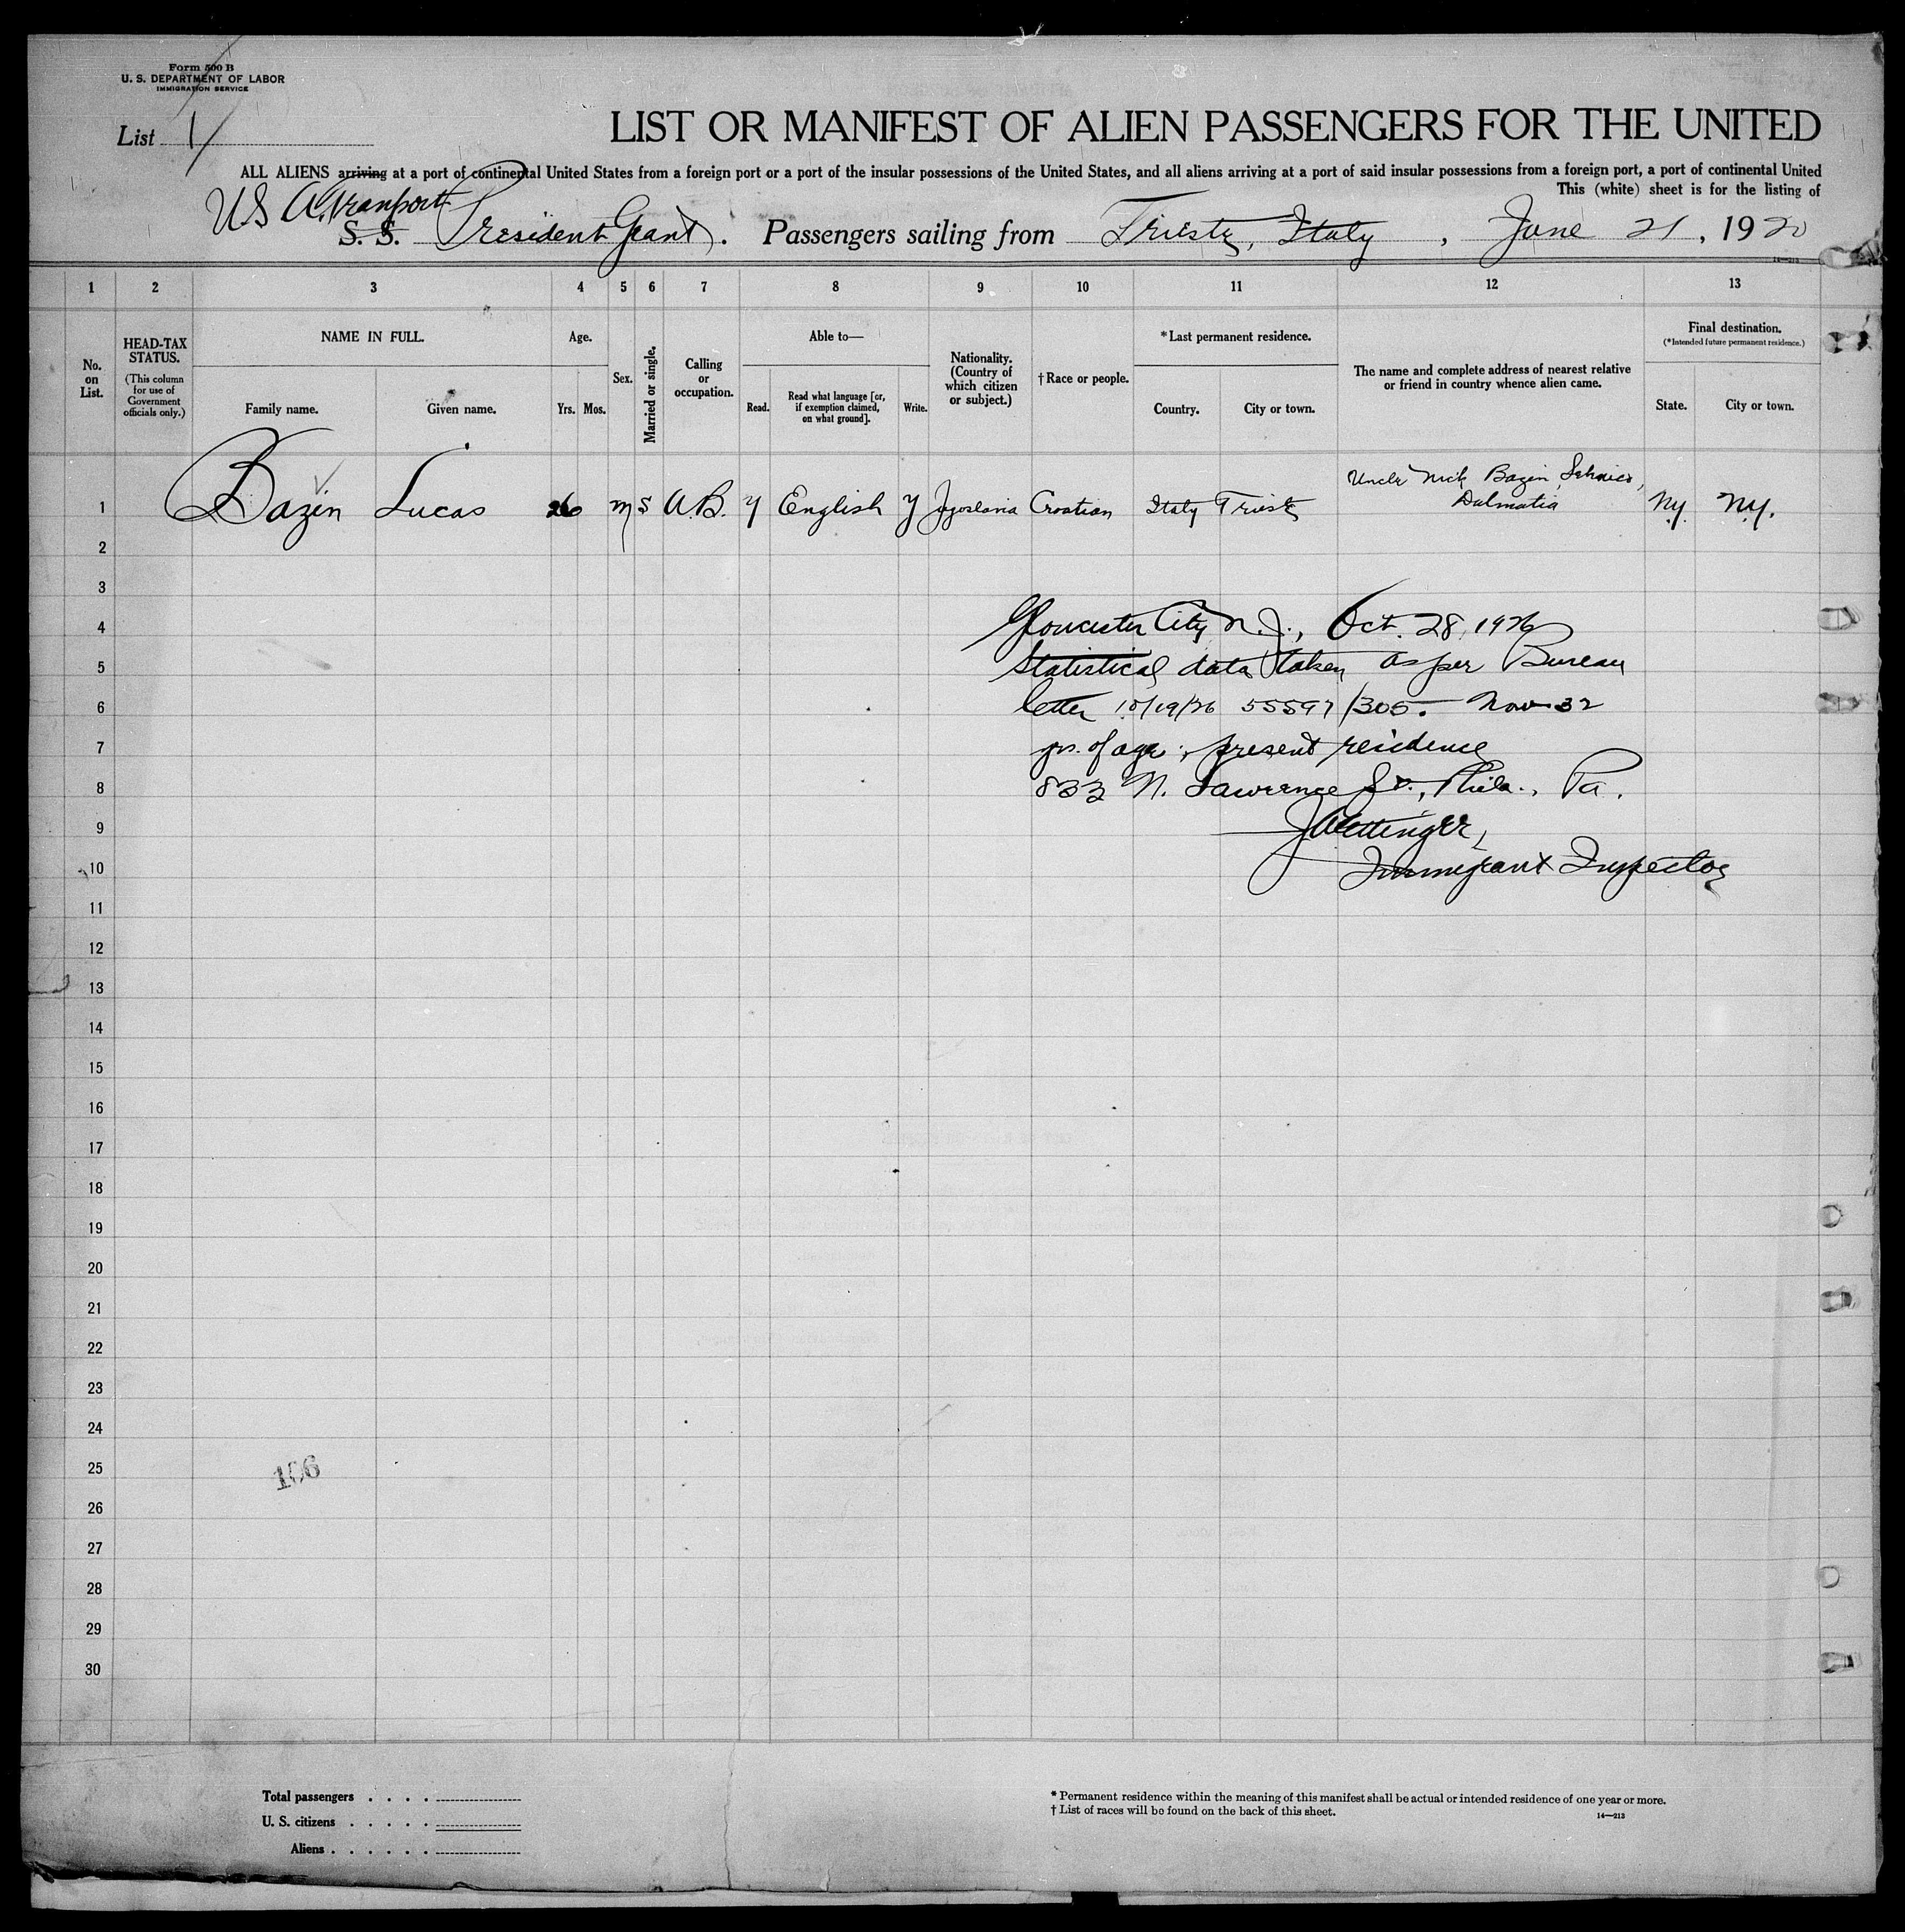 Form 500 B
U. S. DEPARTMENT OF LABOR
IMMIGRATION SERVICE
List 1
LIST OR MANIFEST OF ALIEN PASSENGERS FOR THE UNITED
ALL ALIENS arriving at a port of continental United States from a foreign port or a port of the insular possessions of the United States, and all aliens arriving at a port of said insular possessions from a foreign port, a port of continental United
This (white) sheet is for the listing of
U S A. Transport
S. S. President Grant. Passengers sailing from Trieste, Italy, June 21, 1920
14—213
1 2 3 4 5 6 7 8 9 10 11 12 13
No. on List.
HEAD-TAX STATUS.
(This column for use of Government officials only.)
NAME IN FULL.
Family name. Given name.
Age.
Yrs. Mos.
Sex.
Married or single.
Calling or occupation.
Able to—
Read. Read what language [or, if exemption claimed, on what ground]. Write.
Nationality. (Country of which citizen or subject.)
† Race or people.
* Last permanent residence.
Country. City or town.
The name and complete address of nearest relative or friend in country whence alien came.
Final destination.
(* Intended future permanent residence.)
State. City or town.
1 Bazin Lucas 26 m s A.B. y English y Jugoslavia Croatian Italy Trieste Uncle Nick Bazin, Dalmatia N.Y. N.Y.
2
3
4 Gloucester City N. J., Oct. 28, 1926
5 Statistical data taken as per Bureau
6 letter 10/19/26 55597/305. Now 32
7 yrs. of age; present residence
8 833 N. Lawrence St., Phila., Pa.
9 Ettinger,
10 Immigrant Inspector
11
12
13
14
15
16
17
18
19
20
21
22
23
24
25
106
26
27
28
29
30
Total passengers . . . .
U. S. citizens . . . . .
Aliens . . . . . .
* Permanent residence within the meaning of this manifest shall be actual or intended residence of one year or more.
† List of races will be found on the back of this sheet.
14—213